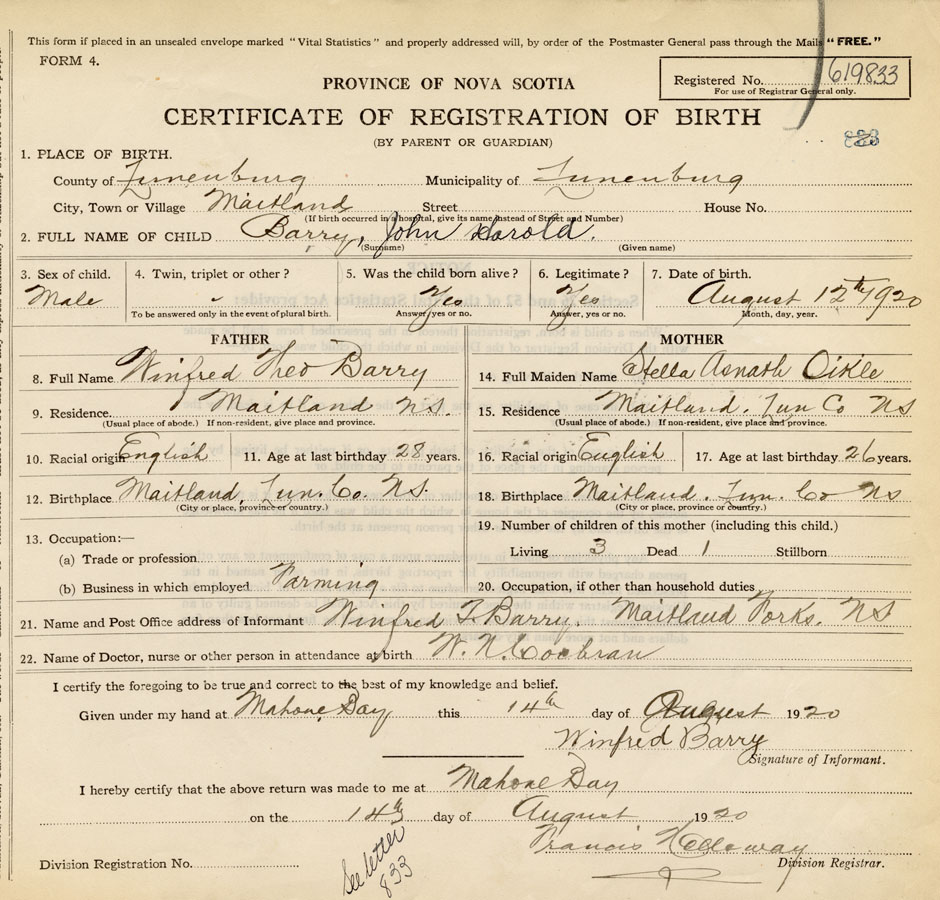 This form if placed in an unsealed envelope marked "Vital Statistics" and properly addressed will, by order of the Postmaster General pass through the Mails "FREE."
FORM 4.
Registered No. 619833
For use of Registrar General only.
PROVINCE OF NOVA SCOTIA
CERTIFICATE OF REGISTRATION OF BIRTH
(BY PARENT OR GUARDIAN)
1. PLACE OF BIRTH.
County of Lunenburg Municipality of Lunenburg
City, Town or Village Maitland Street House No.
(If birth occurred in a hospital, give its name instead of Street and Number)
2. FULL NAME OF CHILD Barry, John Harold.
(Surname) (Given name)
3. Sex of child. 4. Twin, triplet or other? 5. Was the child born alive? 6. Legitimate? 7. Date of birth.
Male " Yes Yes August 12th 1920
To be answered only in the event of plural birth. Answer, yes or no. Answer, yes or no. Month, day, year.
FATHER MOTHER
8. Full Name Winfred Theo Barry 14. Full Maiden Name Stella Asnath Oikle
9. Residence. Maitland NS. 15. Residence Maitland. Lun Co NS
(Usual place of abode.) If non-resident, give place and province. (Usual place of abode.) If non-resident, give place and province.
10. Racial origin English 11. Age at last birthday 28 years. 16. Racial origin English 17. Age at last birthday 26 years.
12. Birthplace Maitland, Lun. Co. NS. 18. Birthplace Maitland. Lun. Co NS
(City or place, province or country.) (City or place, province or country.)
13. Occupation:— 19. Number of children of this mother (including this child.)
(a) Trade or profession Living 3 Dead 1 Stillborn
(b) Business in which employed Farming 20. Occupation, if other than household duties
21. Name and Post Office address of Informant Winfred T. Barry, Maitland Forks. NS
22. Name of Doctor, nurse or other person in attendance at birth W. N. Cochran
I certify the foregoing to be true and correct to the best of my knowledge and belief.
Given under my hand at Mahone Bay this 14th day of August 1920
Winfred Barry
Signature of Informant.
I hereby certify that the above return was made to me at Mahone Bay
on the 14th day of August 1920
Francis Holloway
Division Registration No. Division Registrar.
See letter
833